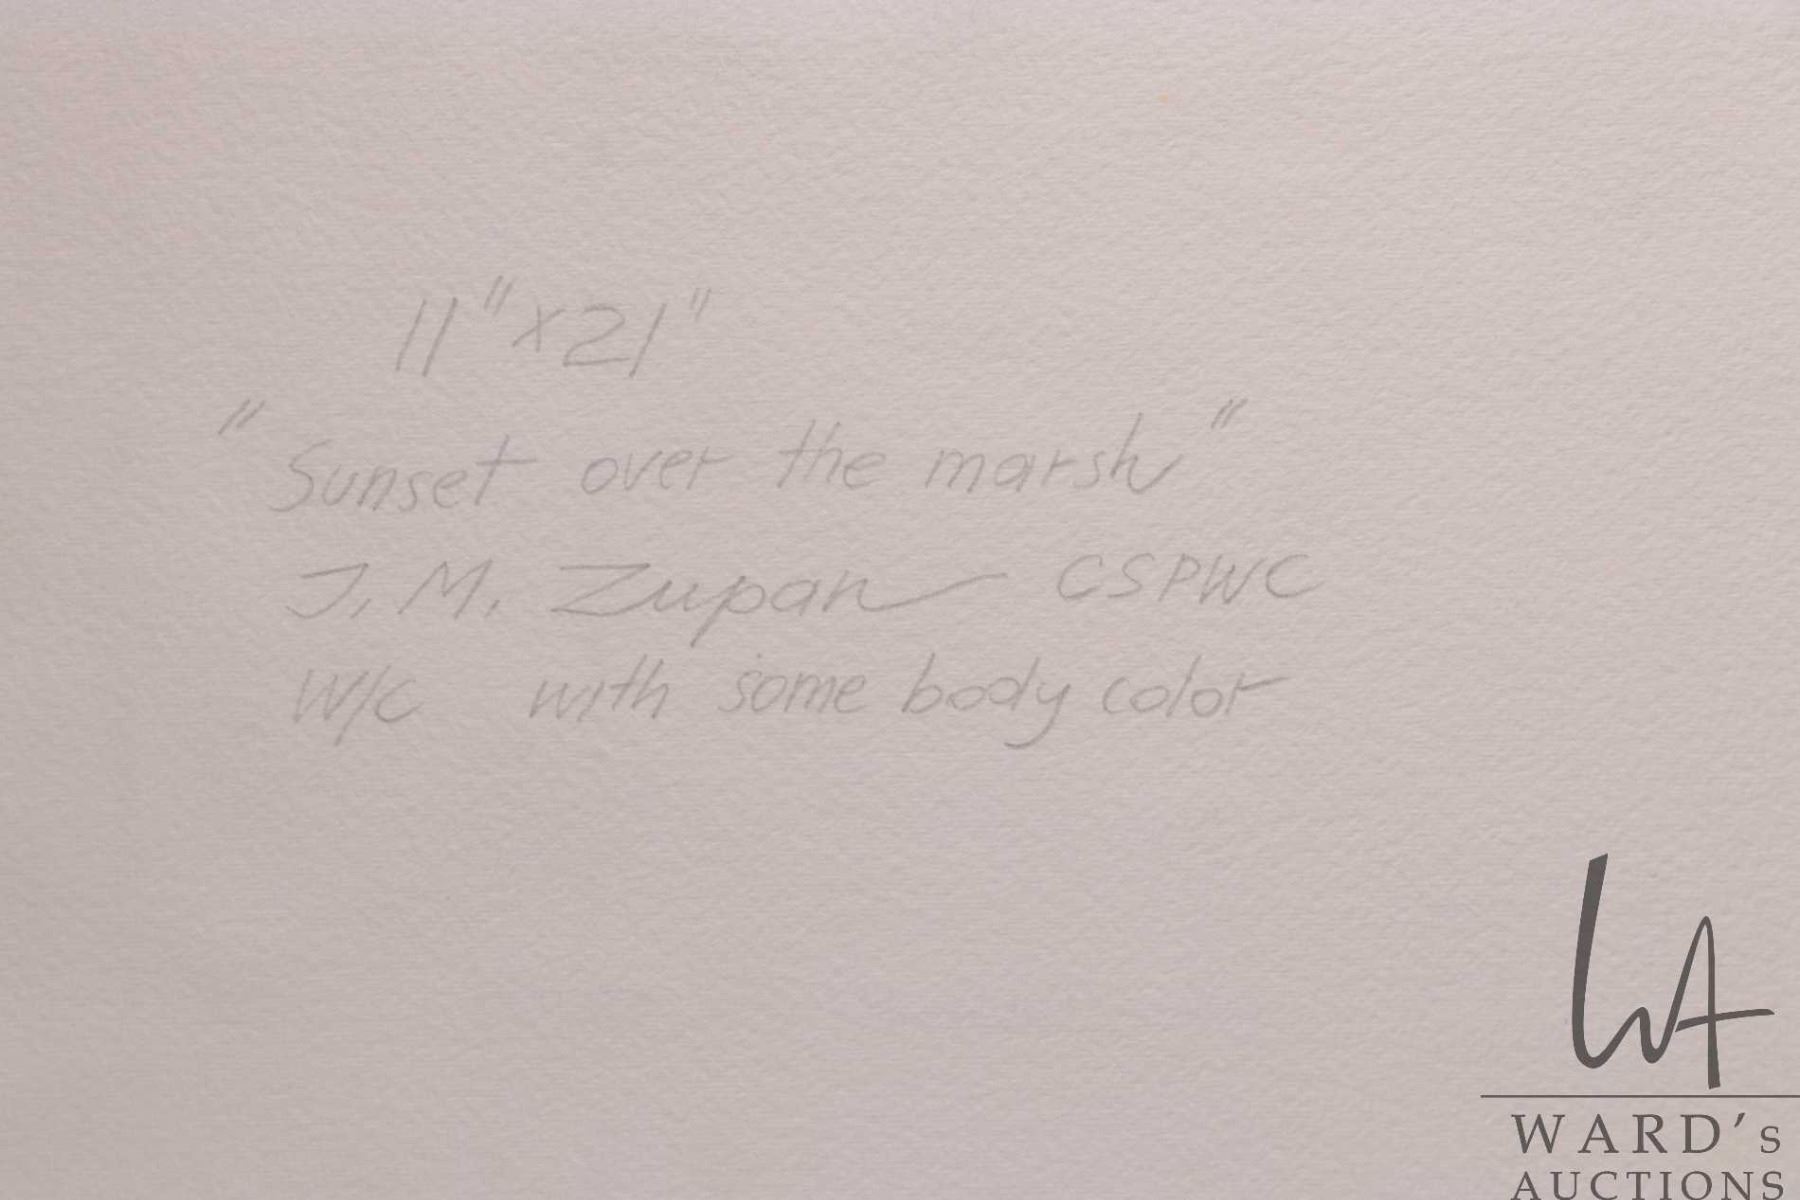 11" x 21"
"Sunset over the marsh"
J. M. Zupan CSPWC
W/C with some body color
WA
WARD's
AUCTIONS